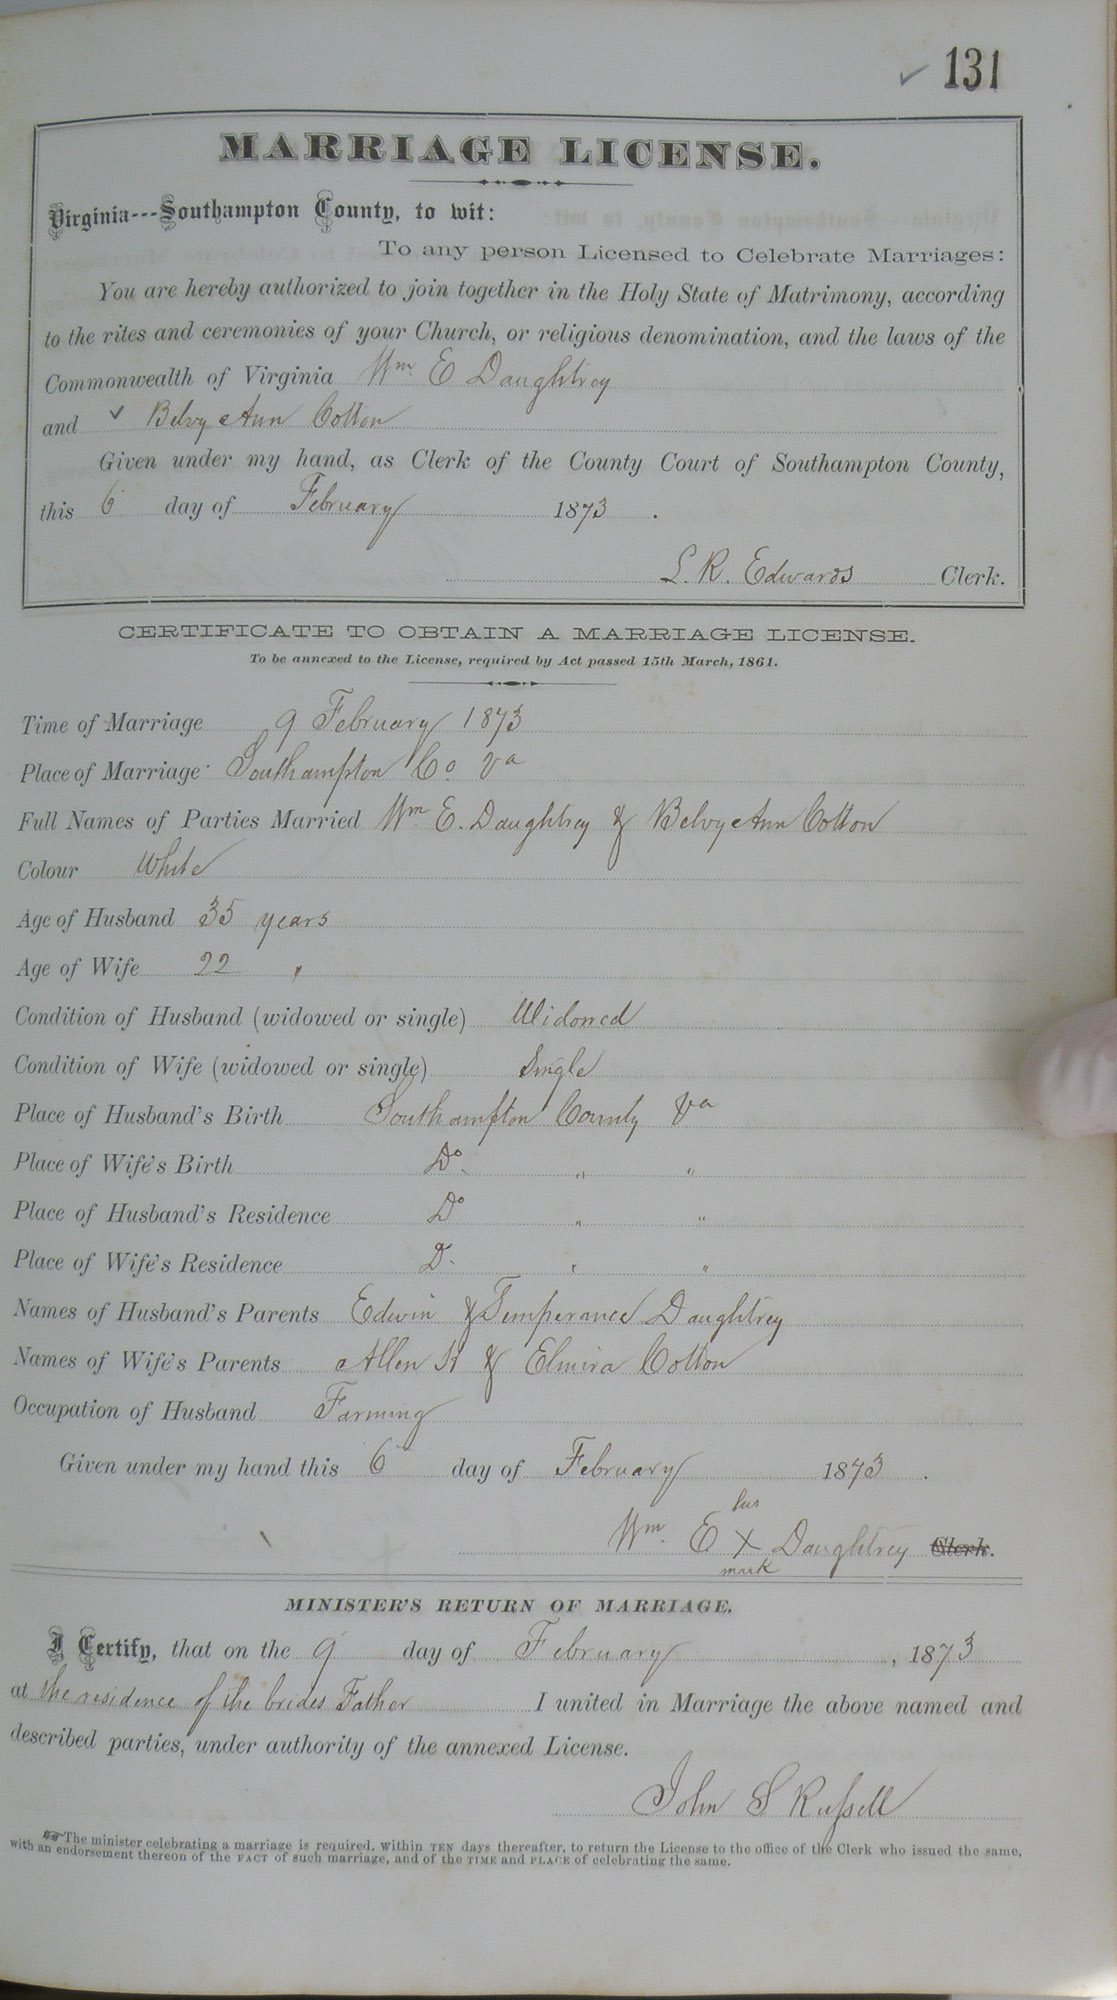 ✓ 131
MARRIAGE LICENSE.
Virginia---Southampton County, to wit:
To any person Licensed to Celebrate Marriages:
You are hereby authorized to join together in the Holy State of Matrimony, according
to the rites and ceremonies of your Church, or religious denomination, and the laws of the
Commonwealth of Virginia Wm. E Daughtrey
and ✓ Belvy Ann Cotton
Given under my hand, as Clerk of the County Court of Southampton County,
this 6 day of February 1873 .
L. R. Edwards Clerk.
CERTIFICATE TO OBTAIN A MARRIAGE LICENSE.
To be annexed to the License, required by Act passed 15th March, 1861.
Time of Marriage 9 February 1873
Place of Marriage Southampton Co Va
Full Names of Parties Married Wm E. Daughtrey & Belvy Ann Cotton
Colour White
Age of Husband 35 years
Age of Wife 22 "
Condition of Husband (widowed or single) Widowed
Condition of Wife (widowed or single) Single
Place of Husband's Birth Southampton County Va
Place of Wife's Birth Do " "
Place of Husband's Residence Do " "
Place of Wife's Residence D. " "
Names of Husband's Parents Edwin & Temperance Daughtrey
Names of Wife's Parents Allen H & Elmira Cotton
Occupation of Husband Farming
Given under my hand this 6 day of February 1873 .
his
Wm. E X Daughtrey Clerk.
mark
MINISTER'S RETURN OF MARRIAGE.
I Certify, that on the 9 day of February , 1873
at the residence of the brides Father I united in Marriage the above named and
described parties, under authority of the annexed License.
John S Russell
☞The minister celebrating a marriage is required, within TEN days thereafter, to return the License to the office of the Clerk who issued the same,
with an endorsement thereon of the FACT of such marriage, and of the TIME and PLACE of celebrating the same.